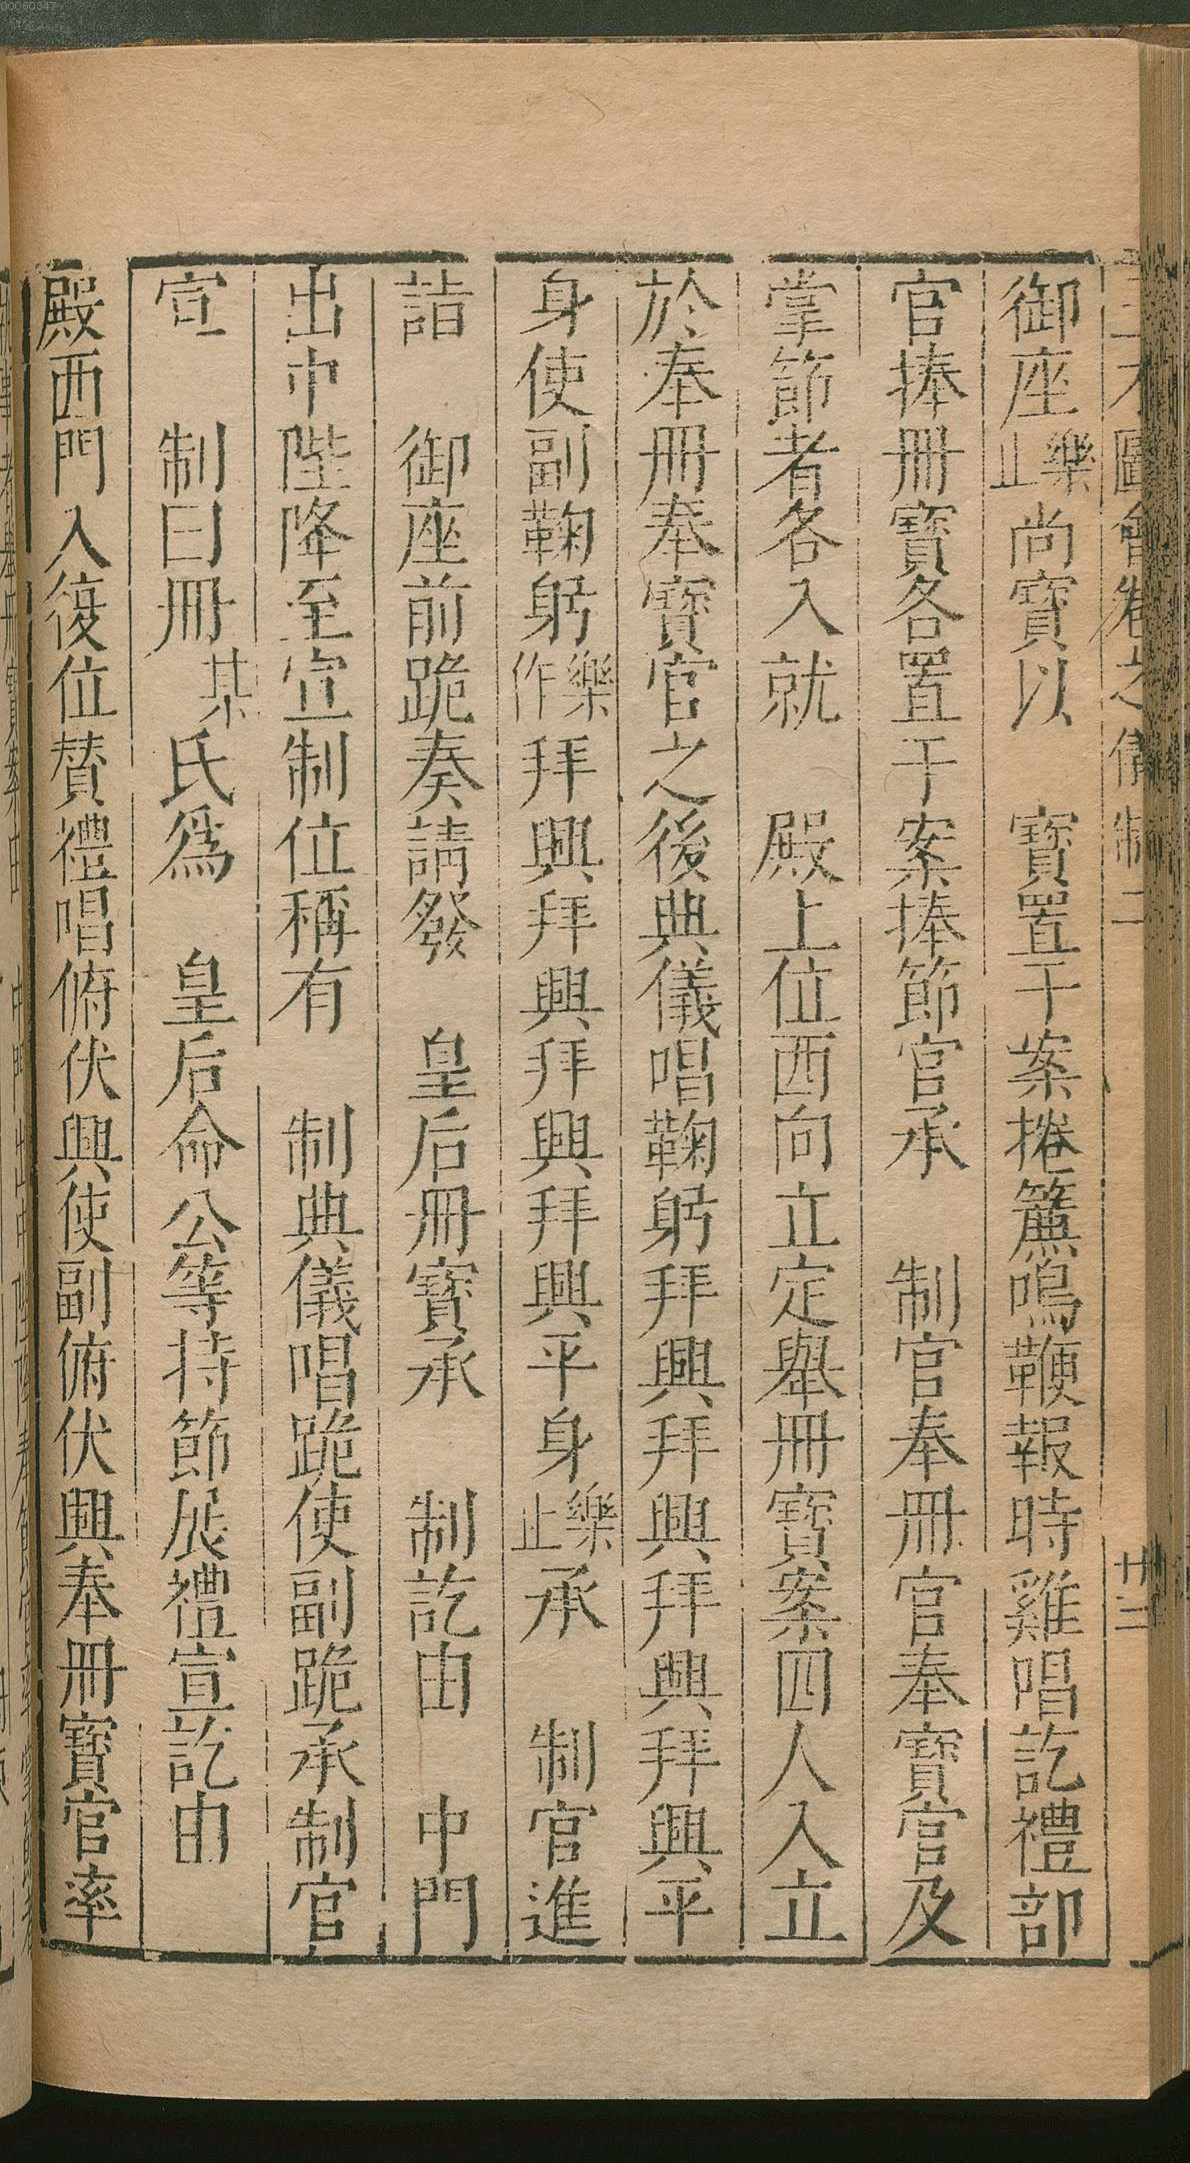 00060347
圖會卷之儀制二 卅二
御座樂止尚寶以 寶置于案捲簾鳴鞭報時雞唱訖禮部
官捧冊寶各置于案捧節官承 制官奉冊官奉寶官及
掌節者各入就 殿上位西向立定舉冊寶案四人入立
於奉冊奉寶官之後典儀唱鞠躬拜興拜興拜興拜興平
身使副鞠躬樂作拜興拜興拜興拜興平身樂止承 制官進
詣 御座前跪奏請發 皇后冊寶承 制訖由 中門
出中陛降至宣制位稱有 制典儀唱跪使副跪承制官
宣 制曰冊某氏爲 皇后命公等持節展禮宣訖由
殿西門入復位贊禮唱俯伏興使副俯伏興奉冊寶官率